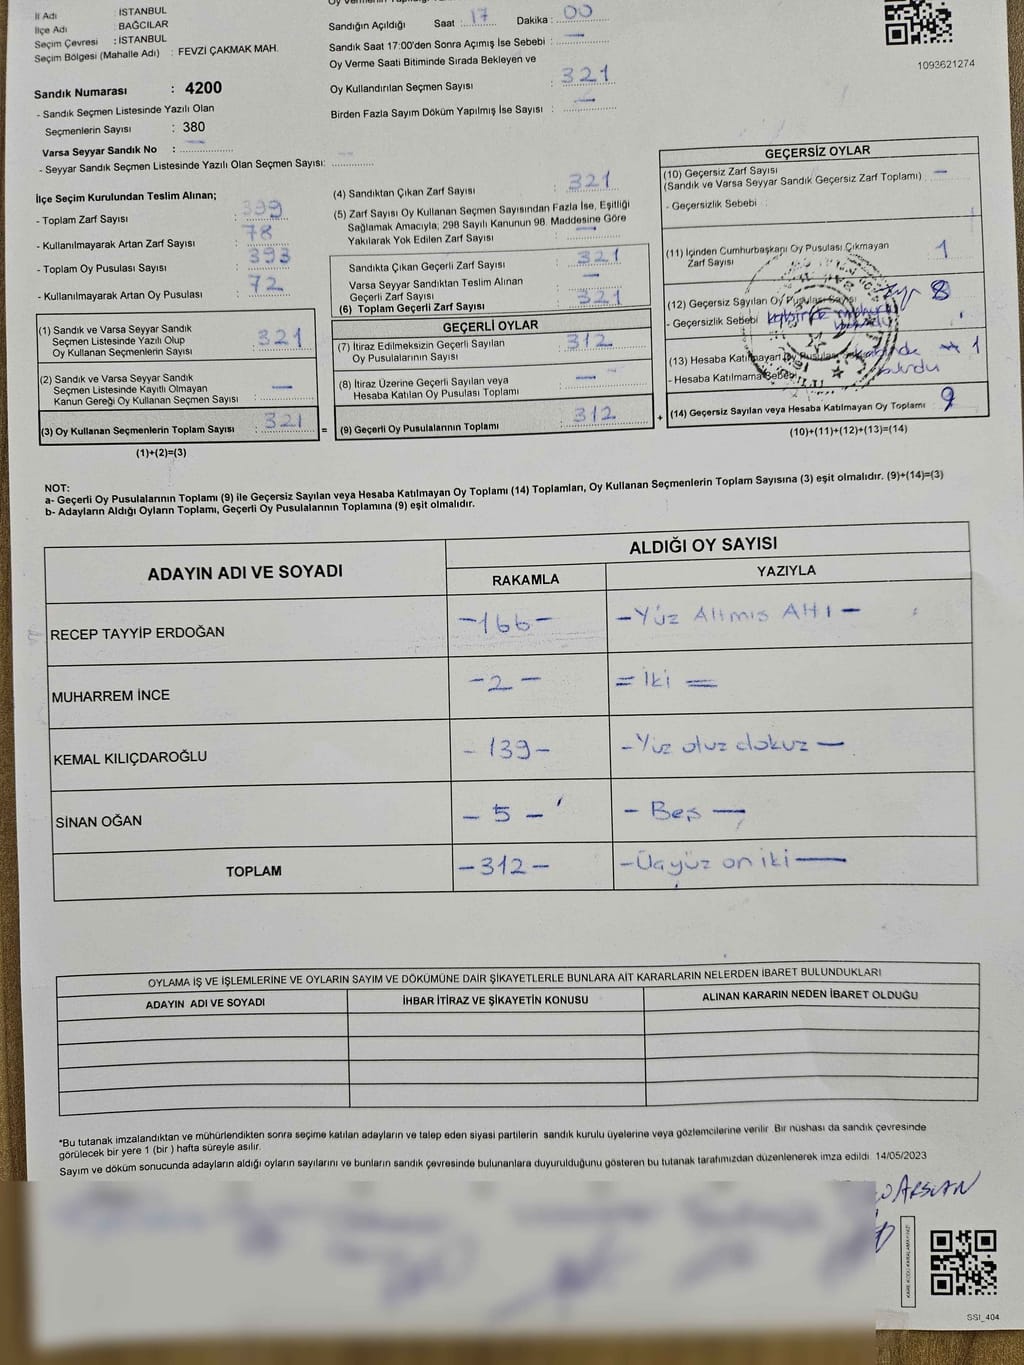 İl Adı : İSTANBUL
İlçe Adı : BAĞCILAR
Seçim Çevresi : İSTANBUL
Seçim Bölgesi (Mahalle Adı) : FEVZİ ÇAKMAK MAH.
Sandık Numarası : 4200
- Sandık Seçmen Listesinde Yazılı Olan
Seçmenlerin Sayısı : 380
Varsa Seyyar Sandık No :
- Seyyar Sandık Seçmen Listesinde Yazılı Olan Seçmen Sayısı:
Sandığın Açıldığı Saat : 17 Dakika : 00
Sandık Saat 17:00'den Sonra Açımış İse Sebebi : —
Oy Verme Saati Bitiminde Sırada Bekleyen ve
Oy Kullandırılan Seçmen Sayısı : 321
Birden Fazla Sayım Döküm Yapılmış İse Sayısı : —
1093621274
İlçe Seçim Kurulundan Teslim Alınan;
- Toplam Zarf Sayısı : 399
- Kullanılmayarak Artan Zarf Sayısı : 78
- Toplam Oy Pusulası Sayısı : 393
- Kullanılmayarak Artan Oy Pusulası : 72
(1) Sandık ve Varsa Seyyar Sandık
Seçmen Listesinde Yazılı Olup
Oy Kullanan Seçmenlerin Sayısı : 321
(2) Sandık ve Varsa Seyyar Sandık
Seçmen Listesinde Kayıtlı Olmayan
Kanun Gereği Oy Kullanan Seçmen Sayısı : —
(3) Oy Kullanan Seçmenlerin Toplam Sayısı : 321 =
(1)+(2)=(3)
(4) Sandıktan Çıkan Zarf Sayısı : 321
(5) Zarf Sayısı Oy Kullanan Seçmen Sayısından Fazla İse, Eşitliği
Sağlamak Amacıyla, 298 Sayılı Kanunun 98. Maddesine Göre
Yakılarak Yok Edilen Zarf Sayısı : —
Sandıkta Çıkan Geçerli Zarf Sayısı : 321
Varsa Seyyar Sandıktan Teslim Alınan
Geçerli Zarf Sayısı : —
(6) Toplam Geçerli Zarf Sayısı : 321
GEÇERLİ OYLAR
(7) İtiraz Edilmeksizin Geçerli Sayılan
Oy Pusulalarının Sayısı : 312
(8) İtiraz Üzerine Geçerli Sayılan veya
Hesaba Katılan Oy Pusulası Toplamı : —
(9) Geçerli Oy Pusulalarının Toplamı : 312 +
GEÇERSİZ OYLAR
(10) Geçersiz Zarf Sayısı
(Sandık ve Varsa Seyyar Sandık Geçersiz Zarf Toplamı) : —
- Geçersizlik Sebebi :
(11) İçinden Cumhurbaşkanı Oy Pusulası Çıkmayan
Zarf Sayısı 1
(12) Geçersiz Sayılan Oy Pusulası Sayısı 8
- Geçersizlik Sebebi
(13) Hesaba Katılmayan Oy Pusulası 1
- Hesaba Katılmama Sebebi
(14) Geçersiz Sayılan veya Hesaba Katılmayan Oy Toplamı : 9
(10)+(11)+(12)+(13)=(14)
NOT:
a- Geçerli Oy Pusulalarının Toplamı (9) ile Geçersiz Sayılan veya Hesaba Katılmayan Oy Toplamı (14) Toplamları, Oy Kullanan Seçmenlerin Toplam Sayısına (3) eşit olmalıdır. (9)+(14)=(3)
b- Adayların Aldığı Oyların Toplamı, Geçerli Oy Pusulalarının Toplamına (9) eşit olmalıdır.
ADAYIN ADI VE SOYADI ALDIĞI OY SAYISI
RAKAMLA YAZIYLA
RECEP TAYYİP ERDOĞAN -166- -Yüz Altmıs Altı-
MUHARREM İNCE -2- = İki =
KEMAL KILIÇDAROĞLU -139- -Yüz otuz dokuz-
SİNAN OĞAN -5- - Beş -
TOPLAM -312- -Üçyüz on iki-
OYLAMA İŞ VE İŞLEMLERİNE VE OYLARIN SAYIM VE DÖKÜMÜNE DAİR ŞİKAYETLERLE BUNLARA AİT KARARLARIN NELERDEN İBARET BULUNDUKLARI
ADAYIN ADI VE SOYADI İHBAR İTİRAZ VE ŞİKAYETİN KONUSU ALINAN KARARIN NEDEN İBARET OLDUĞU
*Bu tutanak imzalandıktan ve mühürlendikten sonra seçime katılan adayların ve talep eden siyasi partilerin sandık kurulu üyelerine veya gözlemcilerine verilir. Bir nüshası da sandık çevresinde
görülecek bir yere 1 (bir ) hafta süreyle asılır.
Sayım ve döküm sonucunda adayların aldığı oyların sayılarını ve bunların sandık çevresinde bulunanlara duyurulduğunu gösteren bu tutanak tarafımızdan düzenlenerek imza edildi. 14/05/2023
ARSLAN
SSI_404